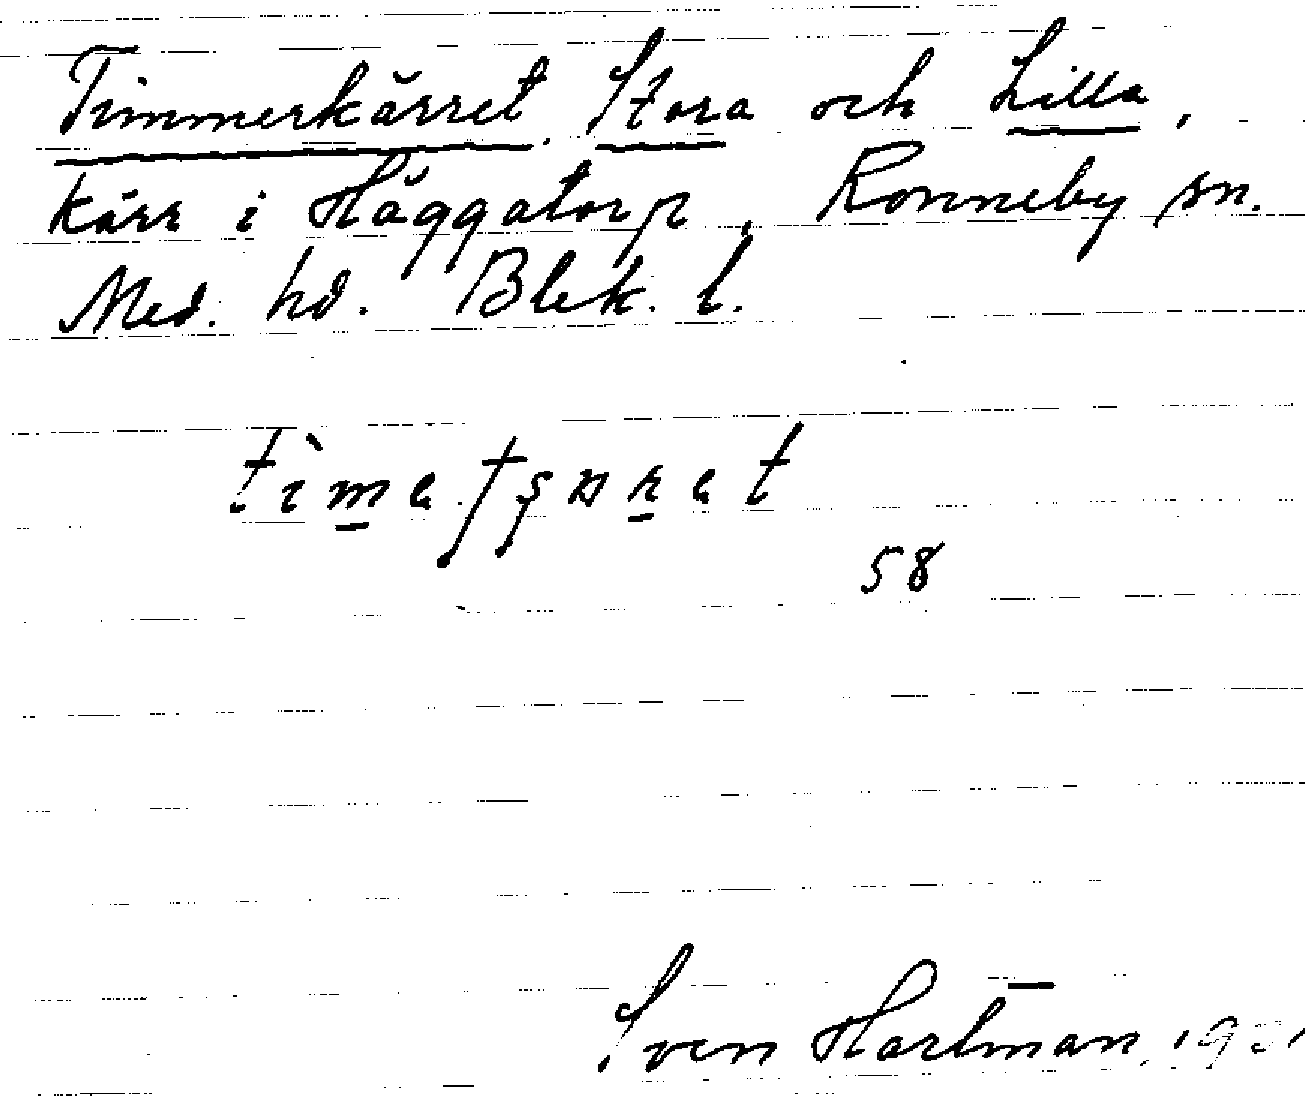 Timmerkärret, Stora och Lilla,
kärr i Häggatorp, Ronneby sn.
Med. hd. Blek. l.
58
Sven Hartman,